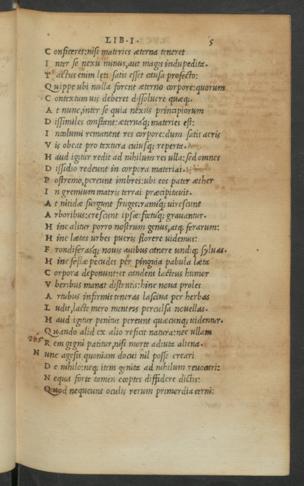 LIB. I. 5
C onficeret; nisi materies æterna teneret
I nter se nexu minus, aut magis indupedita.
T actus enim leti satis esset causa profecto:
Q uippe ubi nulla forent æterno corpore: quorum
C ontextum uis deberet dissoluere quæq;
A t nunc, inter se quia nexus principiorum
D issimiles constant; æternaq; materies est:
I ncolumi remanent res corpore: dum satis acris
V is obeat pro textura cuiusq; reperta.
H aud igitur redit ad nihilum res ulla: sed omnes
D issidio redeunt in corpora materiai.
P ostremo, pereunt imbres: ubi eos pater æther
I n gremium matris terrai præcipitauit.
A t nitidæ surgunt fruges: ramiq; uirescunt
A rboribus: crescunt ipsæ: fœtuq; grauantur.
H inc alitur porro nostrum genus, atq; ferarum:
H inc lætas urbes pueris florere uidemus:
F rondiferasq; nouis auibus canere undiq; syluas.
H inc fessæ pecudes per pinguia pabula læta
C orpora deponunt: et candens lacteus humor
V beribus manat distentis: hinc noua proles
A rtubus infirmis teneras lasciua per herbas
L udit, lacte mero mentes perculsa nouellas.
H aud igitur penitus pereunt quæcunq; uidentur:
Q uando alid ex alio reficit natura: nec ullam
R em gigni patitur, nisi morte adiuta aliena.
N unc age sis quoniam docui nil posse creari
D e nihilo; neq; item genita ad nihilum reuocari:
N equa forte tamen cœptes diffidere dictis:
Q uod nequeunt oculis rerum primordia cerni: